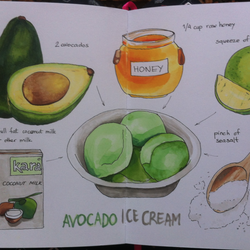 2 avocados
1/4 cup raw honey
squeeze of
HONEY
full fat coconut milk
other milk
pinch of
seasalt
kara
COCONUT MILK
AVOCADO ICE CREAM